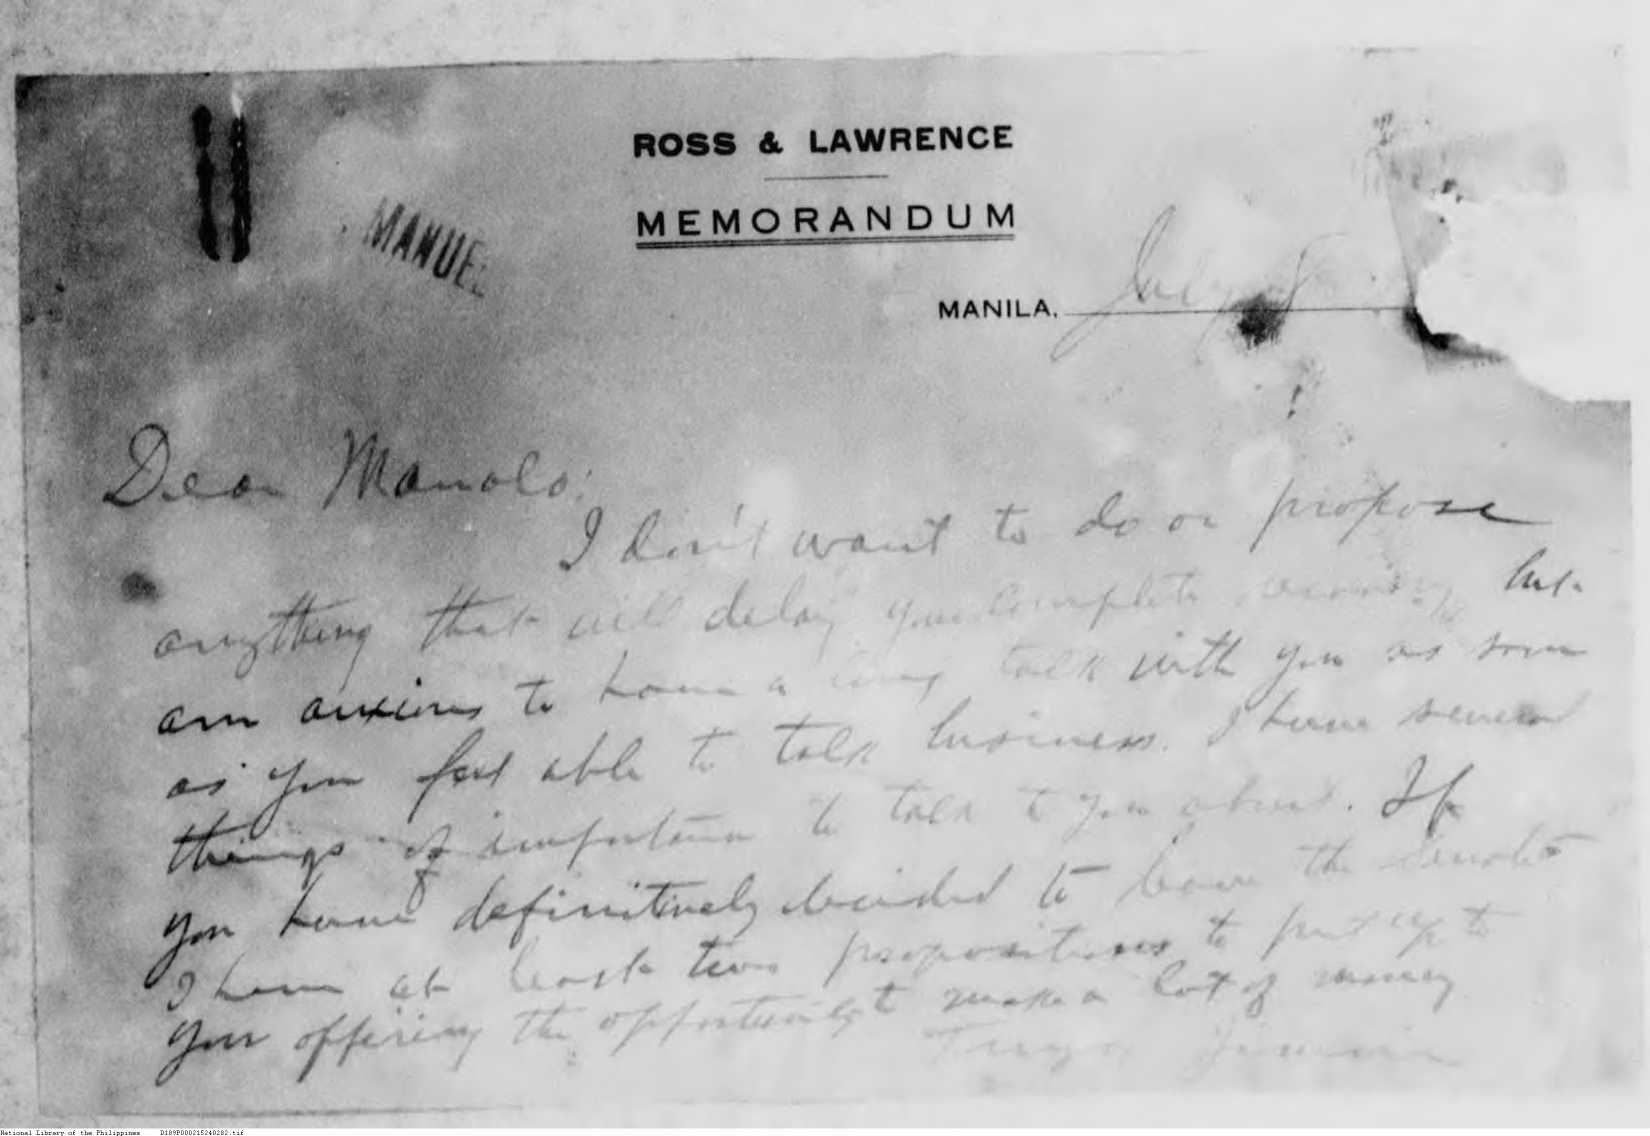 ROSS & LAWRENCE
MEMORANDUM
MANUEL
MANILA, July 8
Dear Manolo:
I don't want to do or propose
anything that will delay your complete recovery but
am anxious to have a long talk with you as soon
as you feel able to talk business. I have several
things of importance to talk to you about. If
you have definitively decided to leave the Senate
I have at least two propositions to put up to
you offering the opportunity to make a lot of money
National Library of the Philippines D189P000215240282.tif